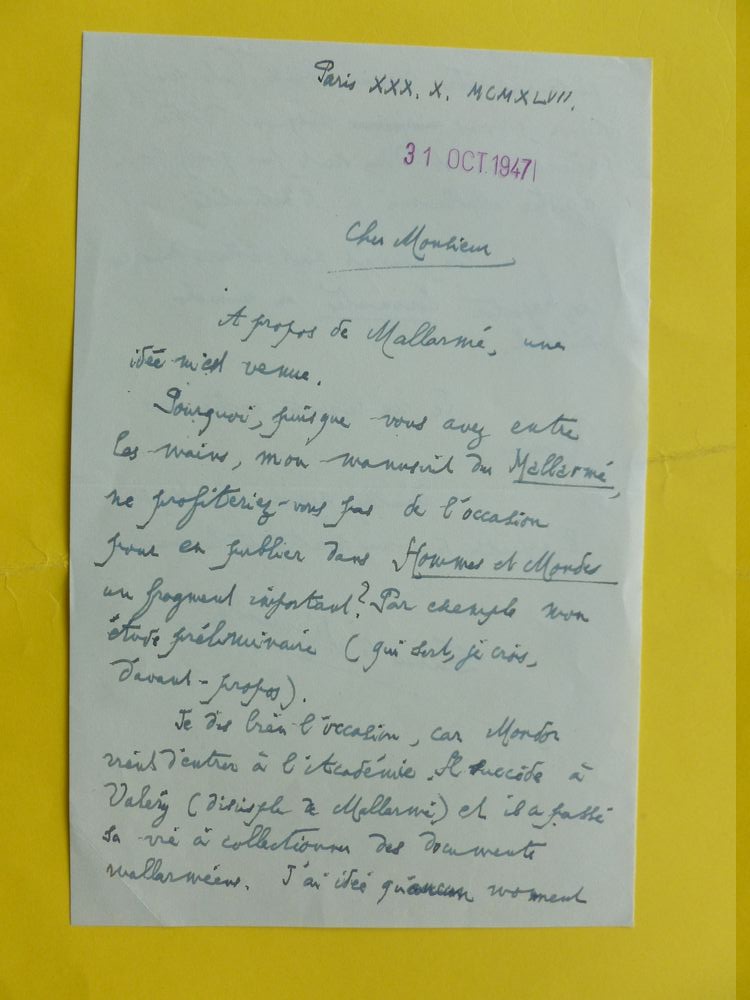 Paris XXX. X. MCMXLVII.
31 OCT. 1947
Cher Monsieur
A propos de Mallarmé, une
idée m'est venue.
Pourquoi, puisque vous avez entre
les mains, mon manuscrit du Mallarmé,
ne profiteriez-vous pas de l'occasion
pour en publier dans Hommes et Mondes
un fragment important? Par exemple mon
étude préliminaire (qui sert, je crois,
d'avant-propos).
Je dis bien l'occasion, car Mondor
vient d'entrer à l'Académie. Il succède à
Valéry (disciple de Mallarmé) et il a passé
sa vie à collectionner des documents
mallarméens. J'ai idée qu'aucun moment